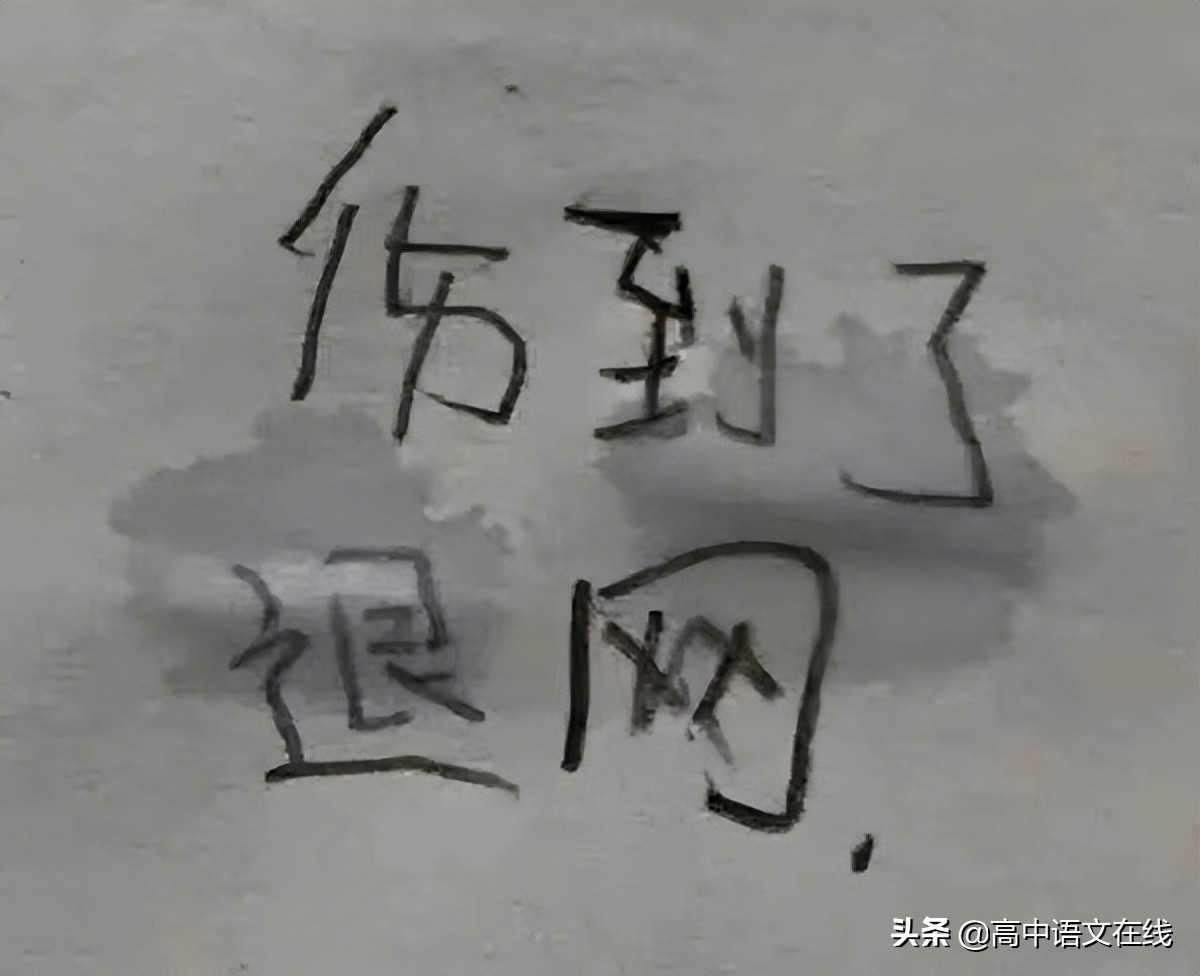 伤到了
退网.
头条 @高中语文在线